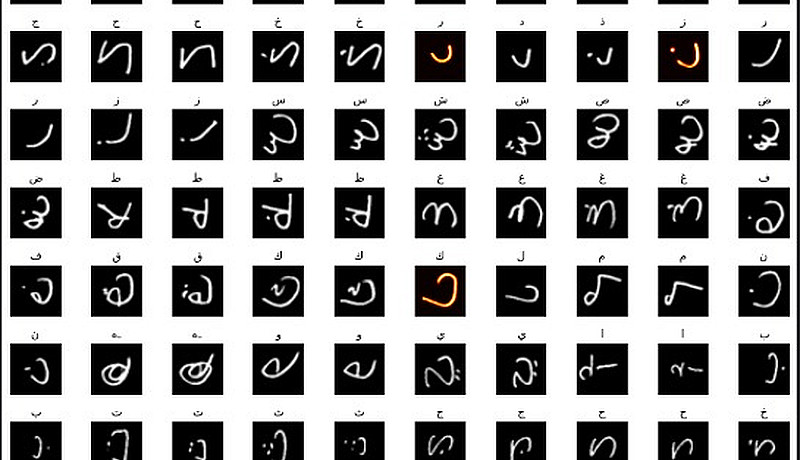 ج ح ح خ خ ر د ذ ز ر
ر ز ز س س ش ش ص ص ض
ض ط ط ظ ظ ع ع غ غ ف
ف ق ق ك ك ك ل م م ن
ن ـه ـه و و ي ي أ أ ب
ب ت ت ث ث ج ج ح ح خ